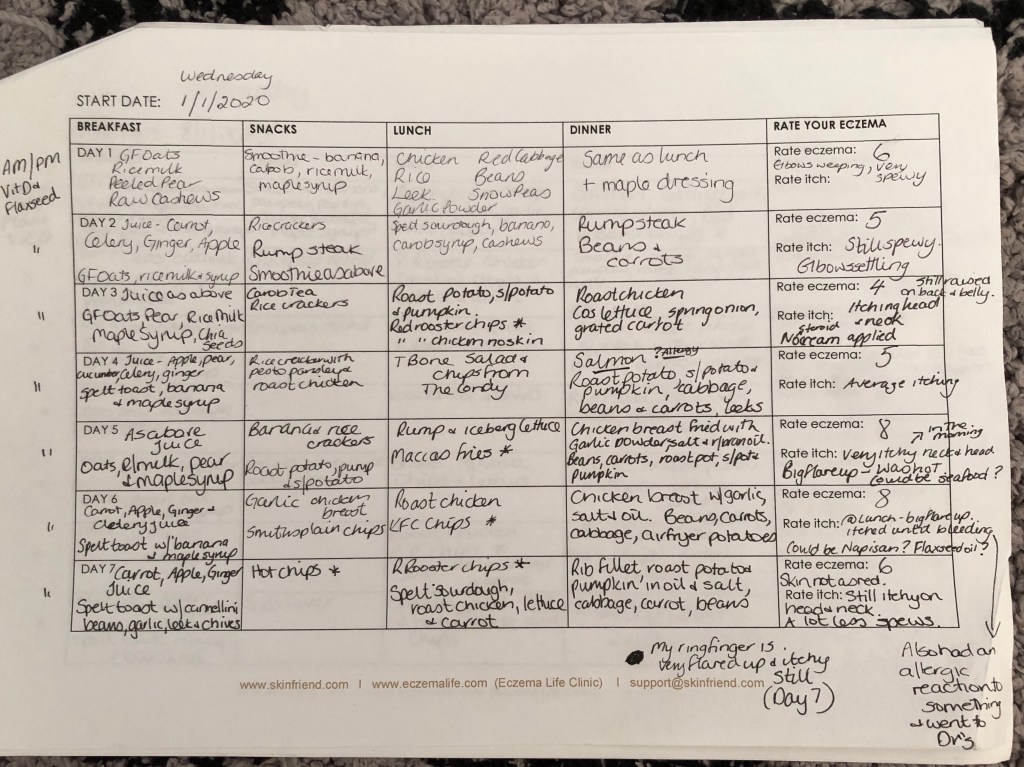 Wednesday
START DATE: 1/1/2020
BREAKFAST
SNACKS
LUNCH
DINNER
RATE YOUR ECZEMA
AM/PM
Vit D &
Flaxseed
DAY 1 GF Oats
Rice milk
Peeled Pear
Raw Cashews
Smoothie - banana,
carob, rice milk,
maple syrup
Chicken Red Cabbage
Rice Beans
Leek Snow Peas
Garlic Powder
Same as lunch
+ maple dressing
Rate eczema: 6
Elbows weeping, very
Rate itch: spewy
"
DAY 2 Juice - Carrot,
Celery, Ginger, Apple
GF Oats, rice milk & syrup
Rice crackers
Rump steak
Smoothie as above
Spelt sourdough, banana,
carob syrup, cashews
Rump steak
Beans &
carrots
Rate eczema: 5
Rate itch: Still spewy.
Elbows settling
"
DAY 3 Juice as above
GF Oats, Pear, Rice Milk
Maple Syrup, Chia
Seeds
Carob Tea
Rice crackers
Roast Potato, s/potato
& pumpkin.
Red rooster chips *
" " chicken no skin
Roast chicken
Cos lettuce, spring onion,
grated carrot
Rate eczema: 4 Still raised
on back & belly.
Rate itch: Itching head
& neck
No steroid cream applied
"
DAY 4 Juice - Apple, pear,
cucumber, celery, ginger
Spelt toast, banana
& maple syrup
Rice cracker with
pesto parsley &
roast chicken
T Bone Salad &
chips from
The Lordy
Salmon ? Allergy
Roast potato, s/potato &
pumpkin, cabbage,
beans & carrots, leeks
Rate eczema: 5
Rate itch: Average itching
"
DAY 5 As above
Juice
Oats, r/milk, pear
& maple syrup
Banana & rice
crackers
Roast potato, pump
& s/potato
Rump & iceberg lettuce
Maccas fries *
Chicken breast fried with
Garlic powder salt & r/bran oil.
Beans, carrots, roast pot, s/pot &
pumpkin
Rate eczema: 8 in the
morning
Rate itch: Very itchy neck & head
Big flare up - was hot
Could be seafood?
"
DAY 6
Carrot, Apple, Ginger &
celery juice
Spelt toast w/ banana
& maple syrup
Garlic chicken
breast
Smiths plain chips
Roast chicken
KFC chips *
Chicken breast w/ garlic,
salt & oil. Beans, carrots,
cabbage, airfryer potatoes
Rate eczema: 8
Rate itch: @ Lunch - big flare up.
itched until bleeding
Could be Napisan? Flaxseed oil?
"
DAY 7 Carrot, Apple, Ginger
Juice
Spelt toast w/ cannellini
beans, garlic, leek & chives
Hot chips *
R Rooster chips *
Spelt sourdough,
roast chicken, lettuce
& carrot
Rib fillet roast potato &
pumpkin in oil & salt,
cabbage, carrot, beans
Rate eczema: 6
Skin not as red.
Rate itch: Still itchy on
head & neck.
A lot less spews.
My ring finger is
very flared up & itchy
still
(Day 7)
Also had an
allergic
reaction to
something
& went to
Dr's
www.skinfriend.com I www.eczemalife.com (Eczema Life Clinic) I support@skinfriend.com